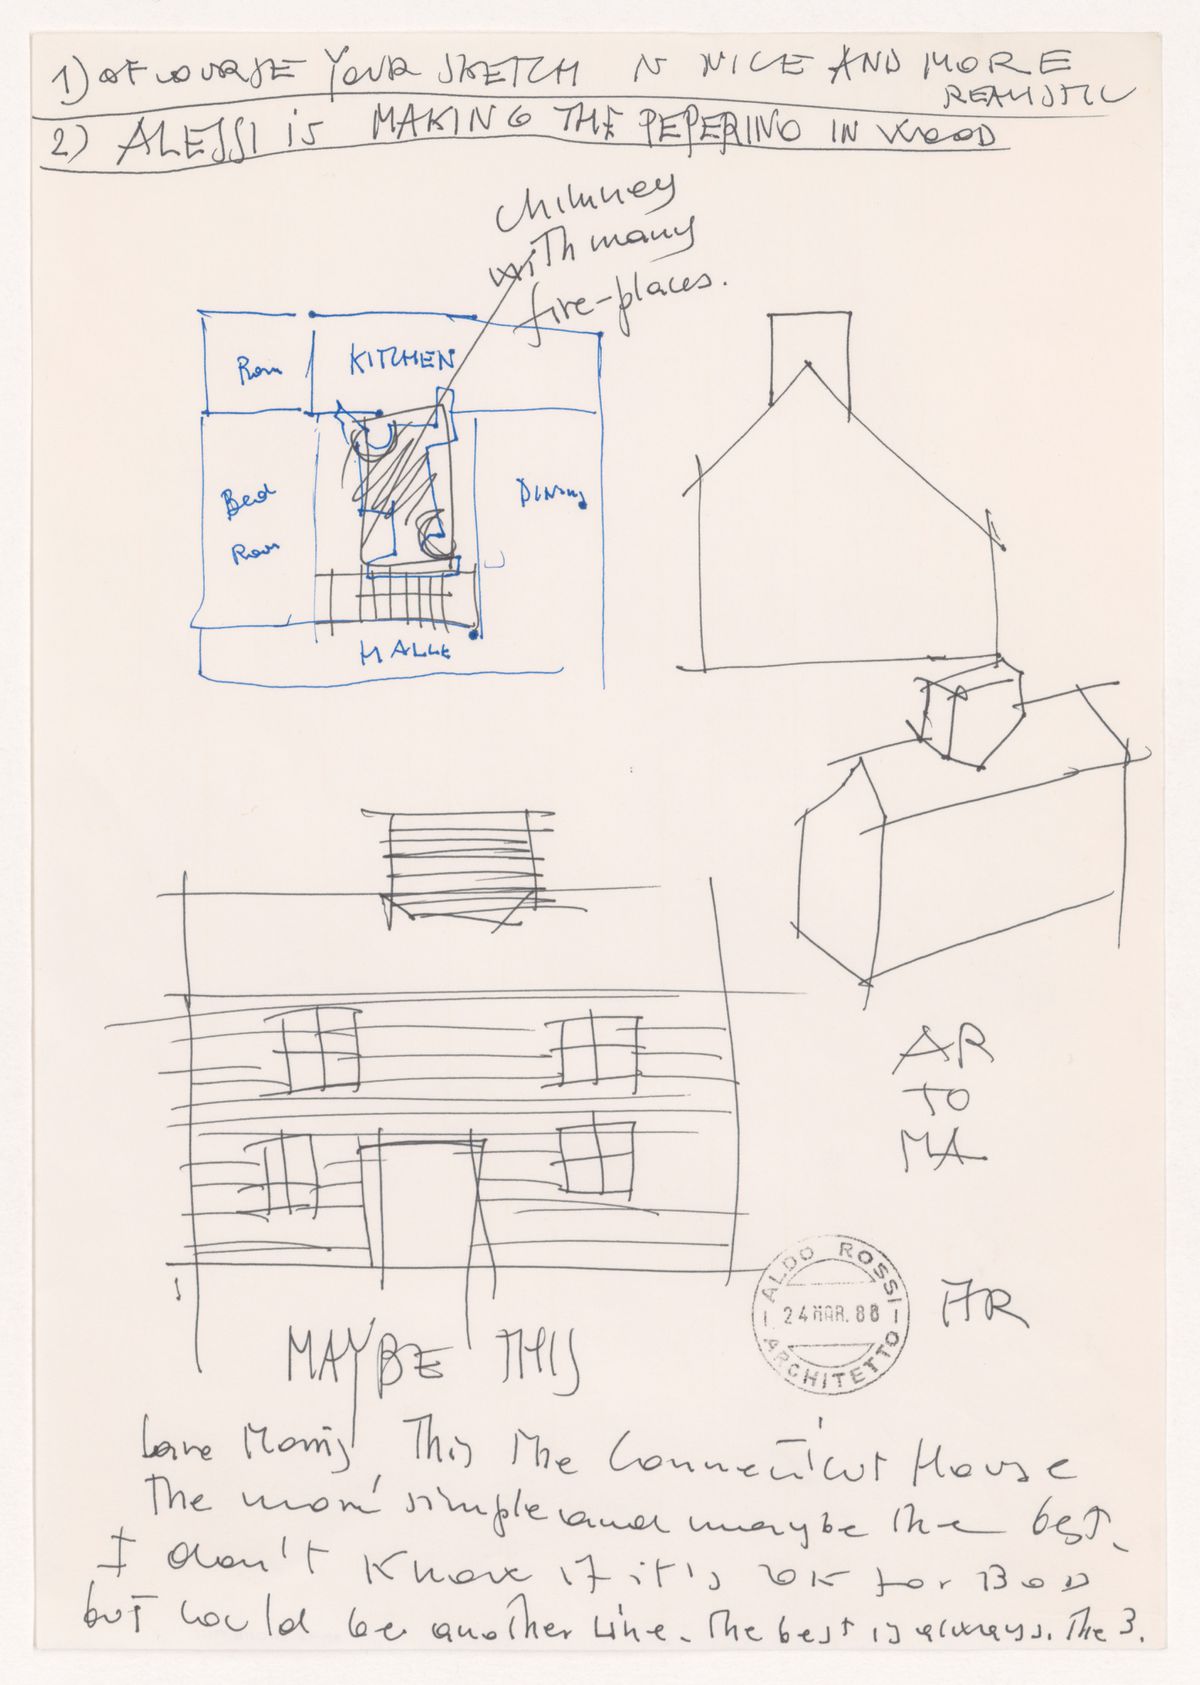 1) OF COURSE YOUR SKETCH IS NICE AND MORE
REALISTIC
2) ALESSI is MAKING THE PEPERINO IN WOOD
chimney
with many
fire-places.
Room
KITCHEN
Bed
Room
DINING
HALLE
AR
TO
MA
ALDO ROSSI
24 MAR. 88
ARCHITETTO
AR
MAYBE THIS
Morris This The Connecticut House
The more simple and maybe the best.
I don't know if it's OK for BOD
but could be another line. The best is always. The 3.